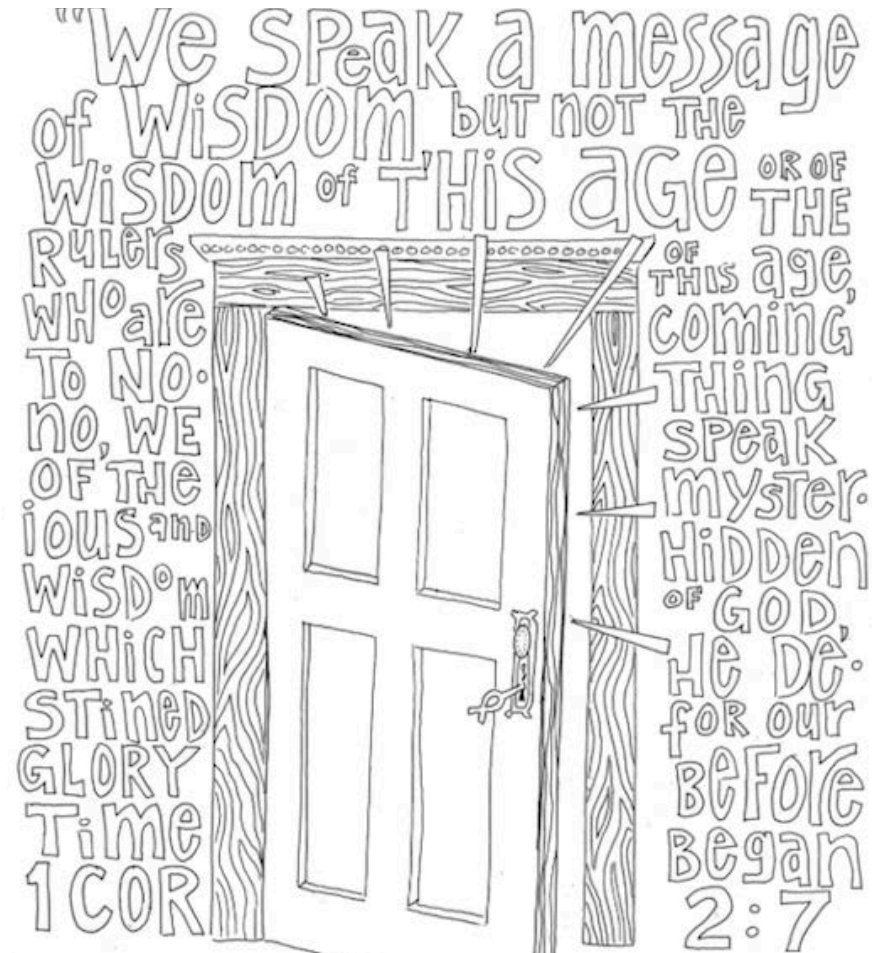 "We SPeak a message
of WiSDOm but not THe
WiSDOm of THiS aGe OR OF THE
RULers OF THIS age,
WHO are coming
To No- THinG
no, WE SPeaK
OF THe mYSTer-
ious and HiDDen
WiSDom OF GOD,
WHiCH He De-
STineD FOR our
GLORY BeFore
Time Began
1 COR 2:7